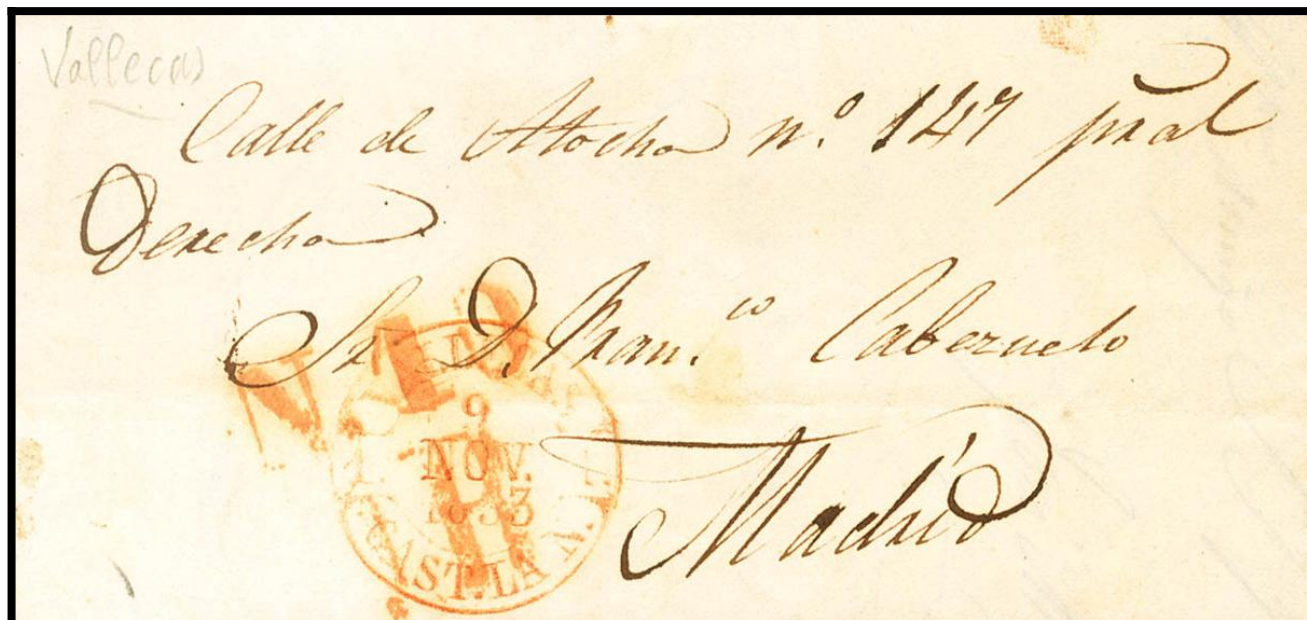 Vallecas
Calle de Atocha nº 147 pral
Derecha
Sr D. Franco Cabezuelo
9
NOV.
1853
CAST. LA N.
Madrid